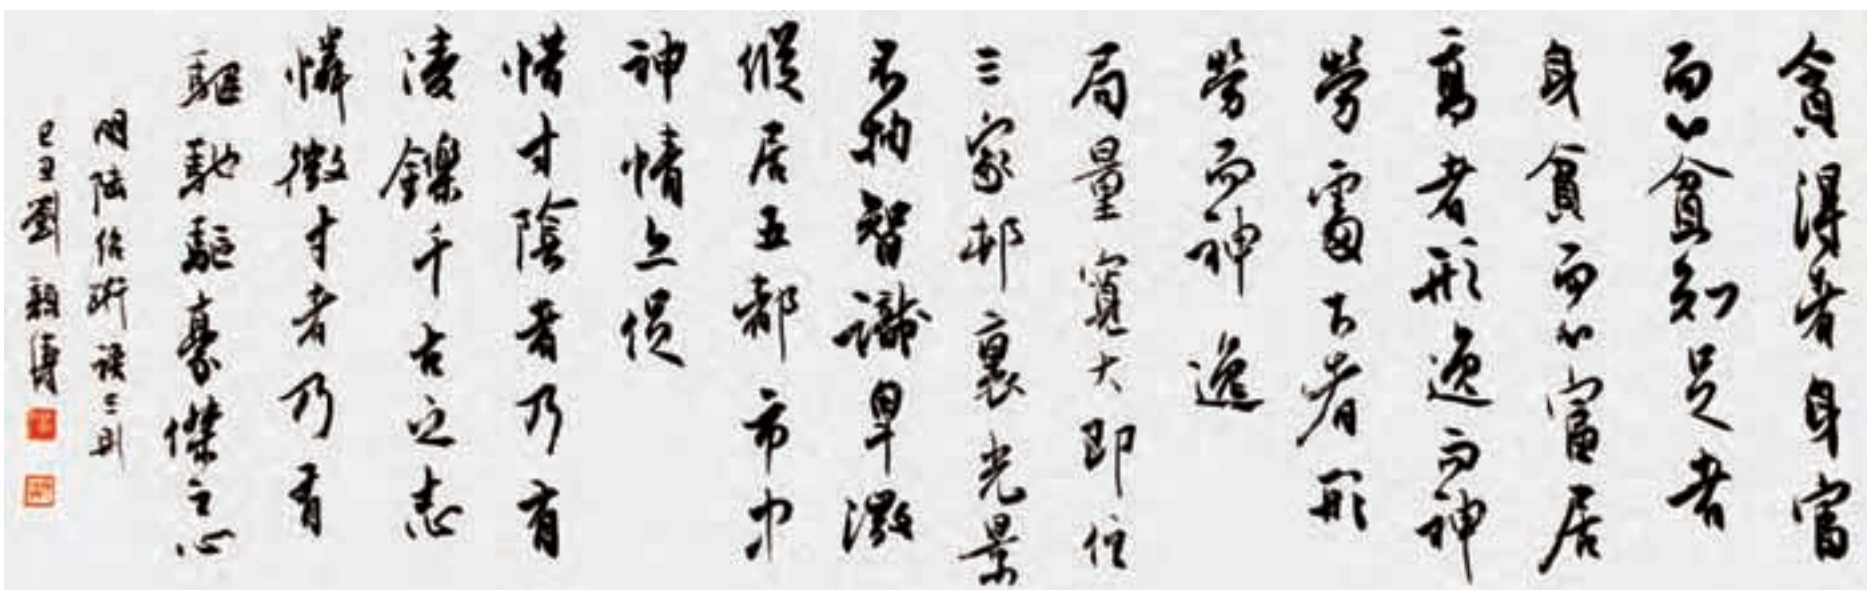 貪得者身富
而心貧知足者
身貧而心富居
高者形逸而神
勞處下者形
勞而神逸
局量寬大即住
三家邨裏光景
不拘智識卑微
縱居五都市中
神情亦促
惜寸陰者乃有
淩鑠千古之志
憐微才者乃有
馳驅豪傑之心
陸紹珩語三則
己丑劉